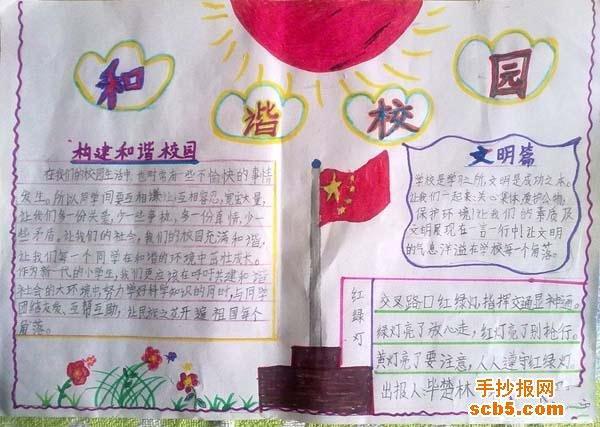 和
谐
校
园
构建和谐校园
在我们的校园生活中，也时常有一些不愉快的事情
发生。所以同学间要互相谦让互相容忍，宽宏大量，
让我们多一份关爱，少一些争执，多一份真情，少一
些矛盾。让我们的社会，我们的校园充满和谐，
让我们每一个同学在和谐的环境中茁壮成长。
作为新一代的小学生，我们更应该在呼吁共建和谐
社会的大环境节努力学好科学知识的同时，与同学
团结友爱、互帮互助，让民族之花开遍祖国每个
角落。
文明篇
学校是学习之所，文明是成功之本。
让我们一起来：关心集体爱护公物，
保护环境！让我们的素质及
文明展现在一言一行中！让文明
的气息洋溢在学校每一个角落。
红绿灯
交叉路口红绿灯，指挥交通显神通。
绿灯亮了放心走，红灯亮了别抢行。
黄灯亮了要注意，人人遵守红绿灯
出报人毕楚林
手抄报网
scb5.com